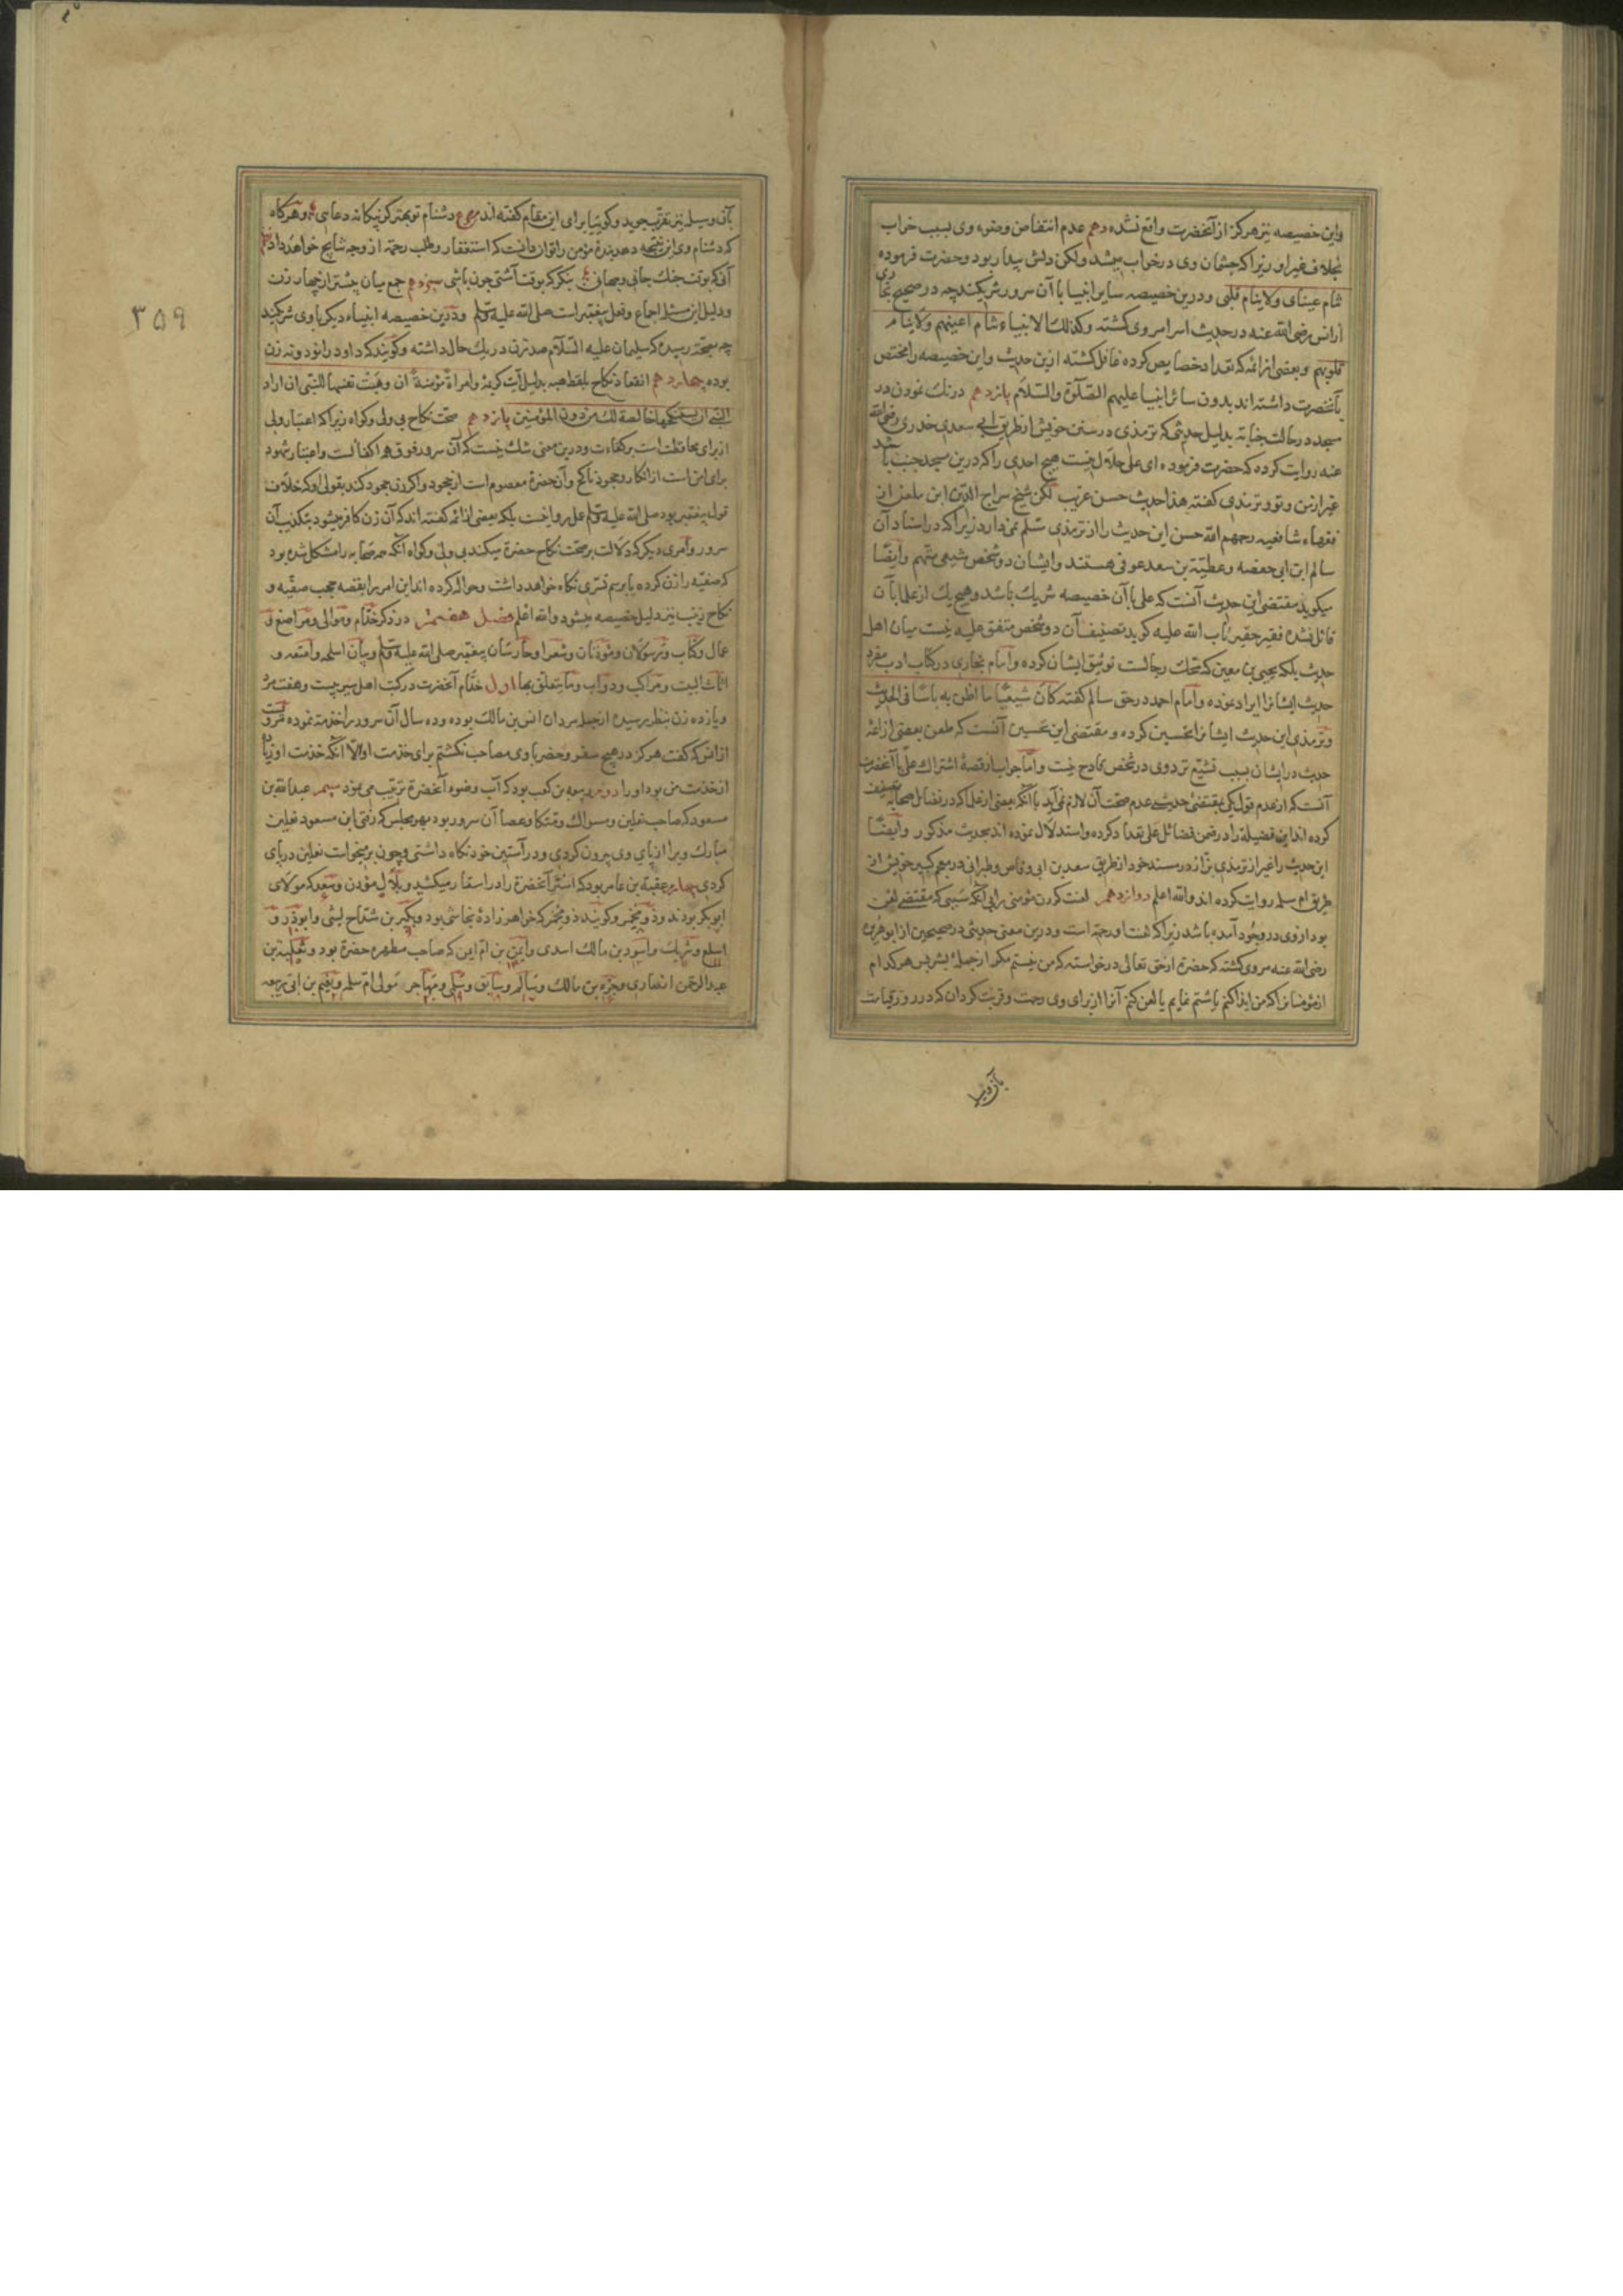 واین خصیصه نیز هرگز از آنحضرت واقع نشده دهم عدم انتقاض وضوء وی بسبب خواب
بخلاف غیر او زیرا که چشمان وی در خواب میشد ولکن دلش بیدار بود و حضرت فرموده
تنام عینای ولاینام قلبی ودرین خصیصه سایر انبیا با آن سرور شریکند چه در صحیح بخاری
از انس رضی الله عنه در حدیث اسرا مروی گشته وکذلک الانبیاء تنام اعینهم ولاینام
قلوبهم وبعضی از ائمه که تعداد خصایص کرده غافل گشته ازین حدیث واین خصیصه را مختص
بآنحضرت داشته اند بدون سائر انبیا علیهم الصلوة والسلام یازدهم درنک نمودن در
مسجد در حالت جنابت بدلیل حدیثی که ترمذی در سنن خویش از طریق ابی سعدی خدری رضی الله
عنه روایت کرده که حضرت فرمود ه ای علی حلال نیست هیچ احدی را که درین مسجد جنب باشد
غیر از من وتو وترمذی گفته هذا حدیث حسن غریب لکن شیخ سراج الدین ابن ملقن از
فقهاء شافعیه رحمهم الله حسن این حدیث را از ترمذی مسلم نمیدارد زیرا که در اسناد آن
سالم ابن ابی حفصه وعطیة بن سعد عوفی هستند وایشان دو شخص شیعی متهم وایضا
میکوید مقتضی این حدیث آنست که علی با آن خصیصه شریک باشد وهیچ یک از علما بآن
قائل نشده فقیر حقیر تاب الله علیه کوید تضعیف آن دو شخص متفق علیه نیست میان اهل
حدیث بلکه یحیی بن معین که محک رجالست توثیق ایشان کرده وامام بخاری در کتاب ادب مفرد
حدیث ایشانرا ایراد نموده وامام احمد در حق سالم گفته کان شیعیا ما اظن به باسا فی الحدیث
وترمذی این حدیث ایشانرا تحسین کرده ومقتضی این تحسین آنست که طعن بعضی از ائمه
حدیث در ایشان بسبب تشیع نزد وی در شخص قادح نیست واما جواب از قصهٔ اشتراک علی با آنحضرت
آنست که از عدم قول یکی بمقتضی حدیث عدم صحت آن لازم نمی آید با آنکه بعضی از علما که در فضائل صحابه تصنیف
کرده اند این فضیلة را در ضمن فضائل علی تعداد کرده واستدلال نموده اند بحدیث مذکور وایضا
این حدیث را غیر از ترمذی بزاز در مسند خود از طریق سعد بن ابی وقاص وطبرانی در معجم کبیر خویش از
طریق ام سلمه روایت کرده اند والله اعلم دوازدهم لعنت کردن مؤمنی را بی آنکه سببی که مقتضی لعن
بود از وی در وجود آمده باشد زیرا که لعنت او رحمة است ودرین معنی حدیثی در صحیحین از ابوهریره
رضی الله عنه مروی گشته که حضرت از حق تعالی درخواسته که من نیستم مکر از جمله بشر پس هر کدام
از مؤمنانرا که من ایذا کنم یا شتم نمایم یا لعن کنم آنرا از برای وی رحمت وقربت کردان که در روز قیامت
بآن وسیله
بآن وسیله نیز تقرب جوید وکوییا برای این مقام گفته اند ع دشنام تو بهتر که ز بیکانه دعایی وهرکاه
که دشنام وی این نتیجه دهد بندهٔ مؤمن را توان دانست که استغفار وطلب رحمة از وجه نتایج خواهد داد
آن که بوقت جنک جانی وجهانی بنکر که بوقت آشتی چون باشی سیزدهم جمع میان بیشتر از چهار زن
ودلیل این مسئله اجماع وفعل پیغمبر است صلی الله علیه وسلم ودرین خصیصه انبیاء دیکر با وی شریکند
چه بصحة رسیده که سلیمان علیه السلام صد زن در یک حال داشته وکویند که داود را نود ونه زن
بوده چهاردهم انعقاد نکاح بلفظ هبه بدلیل آیت کریمهٔ وامراة مؤمنة ان وهبت نفسها للنبی ان اراد
النبی ان یستنکحها خالصة لک من دون المؤمنین پانزدهم صحت نکاح بی ولی وکواه زیرا که اعتبار ولی
از برای محافظت است بر کفاءت ودرین معنی شک نیست که آن سرور فوق همه اکفائست واعتبار شهود
برای امن است از انکار وجحود ناکح وآن حضرت معصوم است از جحود واکر زن جحود کند بقولی او که خلاف
قول پیغمبر بود صلی الله علیه وسلم عمل روا نیست بلکه بعضی از ائمه گفته اند که آن زن کافر میشود بتکذیب آن
سرور وامری دیکر که دلالت بر صحت نکاح حضرت میکند بی ولی وکواه آنکه صحابه را مشکل شده بود
که صفیه را زن کرده یا برسم تسری نکاه خواهد داشت وحواله کرده اند این امر را بقصه حجب صفیه و
نکاح زینب نیز دلیل خصیصه میشود والله اعلم فصل هفتم در ذکر خدام وموالی ومراضع و
عمال وکتاب ورسولان ومؤذنان وشعرا وحارسان پیغمبر صلی الله علیه وسلم وبیان اسلحه وامتعه و
اثاث البیت ومراکب ودواب وما یتعلق بها اول خدام آنحضرت در کتب اهل سیر بیست وهفت مرد
ویازده زن بنظر رسیده ازجمله مردان انس بن مالک بوده وده سال آن سرور را خدمة نموده مرویست
از انس که گفت هرکز در هیچ سفر وحضر با وی مصاحب نکشتم برای خدمت او الا آنکه خدمت او زیاده
از خدمت من بود او را دوم ربیعه بن کعب بود که آب وضوء آنحضرة ترتیب می نمود سیم عبدالله بن
مسعود که صاحب نعلین ومسواک ومتکا وعصا آن سرور بود بهر مجلس که رفتی ابن مسعود نعلین
مبارک ویرا از پای وی بیرون کردی ودر آستین خود نکاه داشتی وچون برمیخواست نعلین در پای
کردی چهارم عقبة بن عامر بود که استر آنحضرة را در اسفار میکشید وبلال مؤذن وسعد که مولای
ابوبکر بودند وذو مخمر وکویند ذو مخبر که خواهر زادهٔ نجاشی بود وبکیر بن شداخ لیثی وابوذر و
اسلع وشریک واسود بن مالک اسدی وایمن بن ام ایمن که صاحب مطهره حضرة بود وثعلبة بن
عبدالرحمن انصاری وجزء بن مالک وسالم وسابق وسلمی ومهاجر مولی ام سلمه ونعیم بن ابی ربیعه
۳۵۹